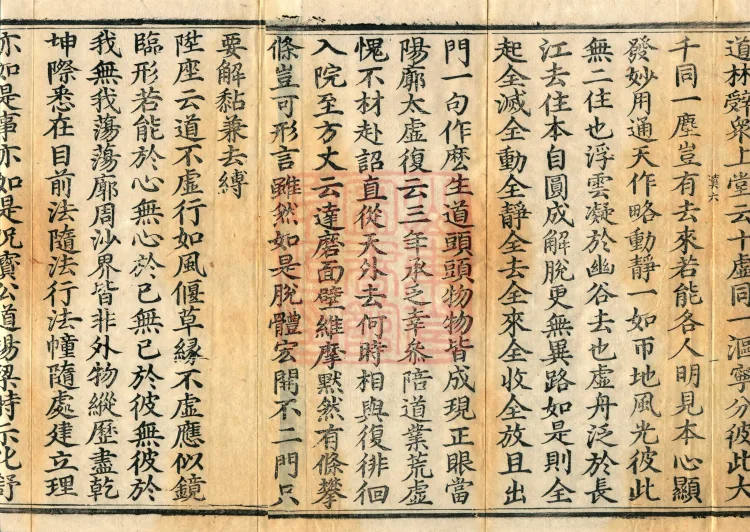 道林辭眾上堂云十虛同一漚寧分彼此大
千同一塵豈有去來若能各人明見本心顯
發妙用通天作略動靜一如帀地風光彼此
無二住也浮雲凝於幽谷去也虛舟泛於長
江去住本自圓成解脫更無異路如是則全
起全滅全動全靜全去全來全收全放且出
門一句作麽生道頭頭物物皆成現正眼當
陽廓太虛復云三年承乏幸叅陪道業荒虛
愧不材赴詔直從天外去何時相與復徘徊
入院至方丈云達磨面壁維摩黙然有條攀
條豈可形言雖然如是脫體宏開不二門只
要解黏兼去縛
陞座云道不虛行如風偃草緣不虛應似鏡
臨形若能於心無心於已無已於彼無彼於
我無我蕩蕩廓周沙界皆非外物縱歷盡乾
坤際悉在目前法隨法行法幢隨處建立理
亦如是事亦如是況寶公道場梁時示化舒